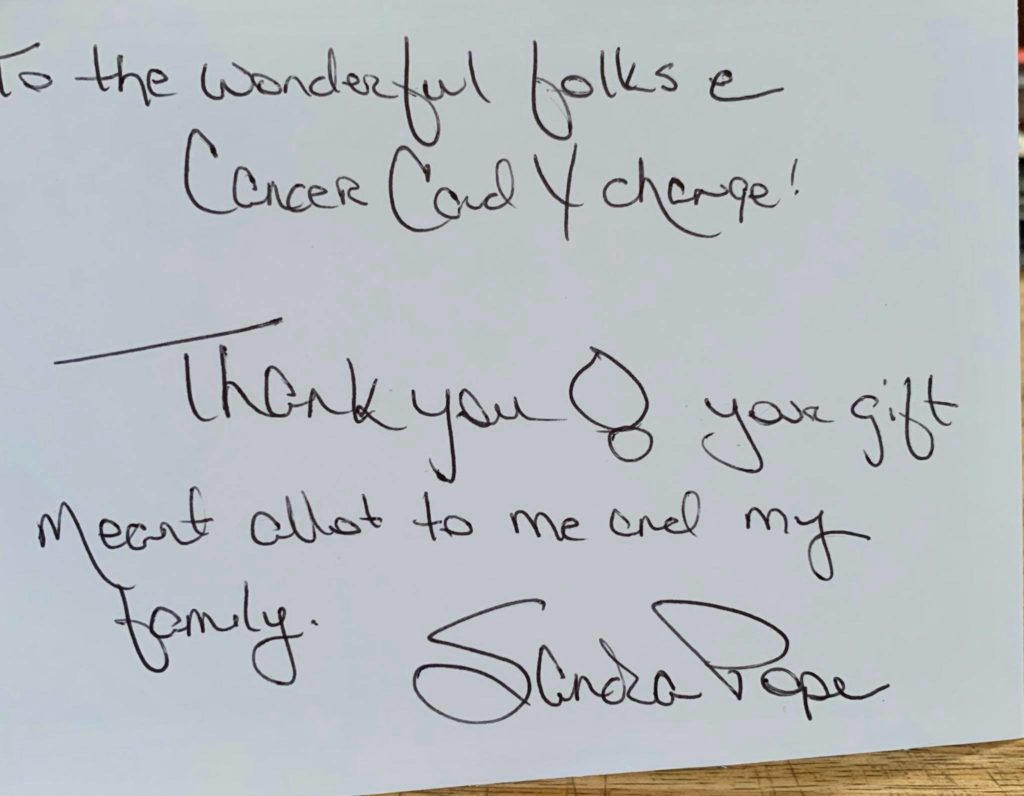 To the wonderful folks @
Cancer Card Xchange!
Thank you! your gift
Meant allot to me and my
family.
Sandra Pope